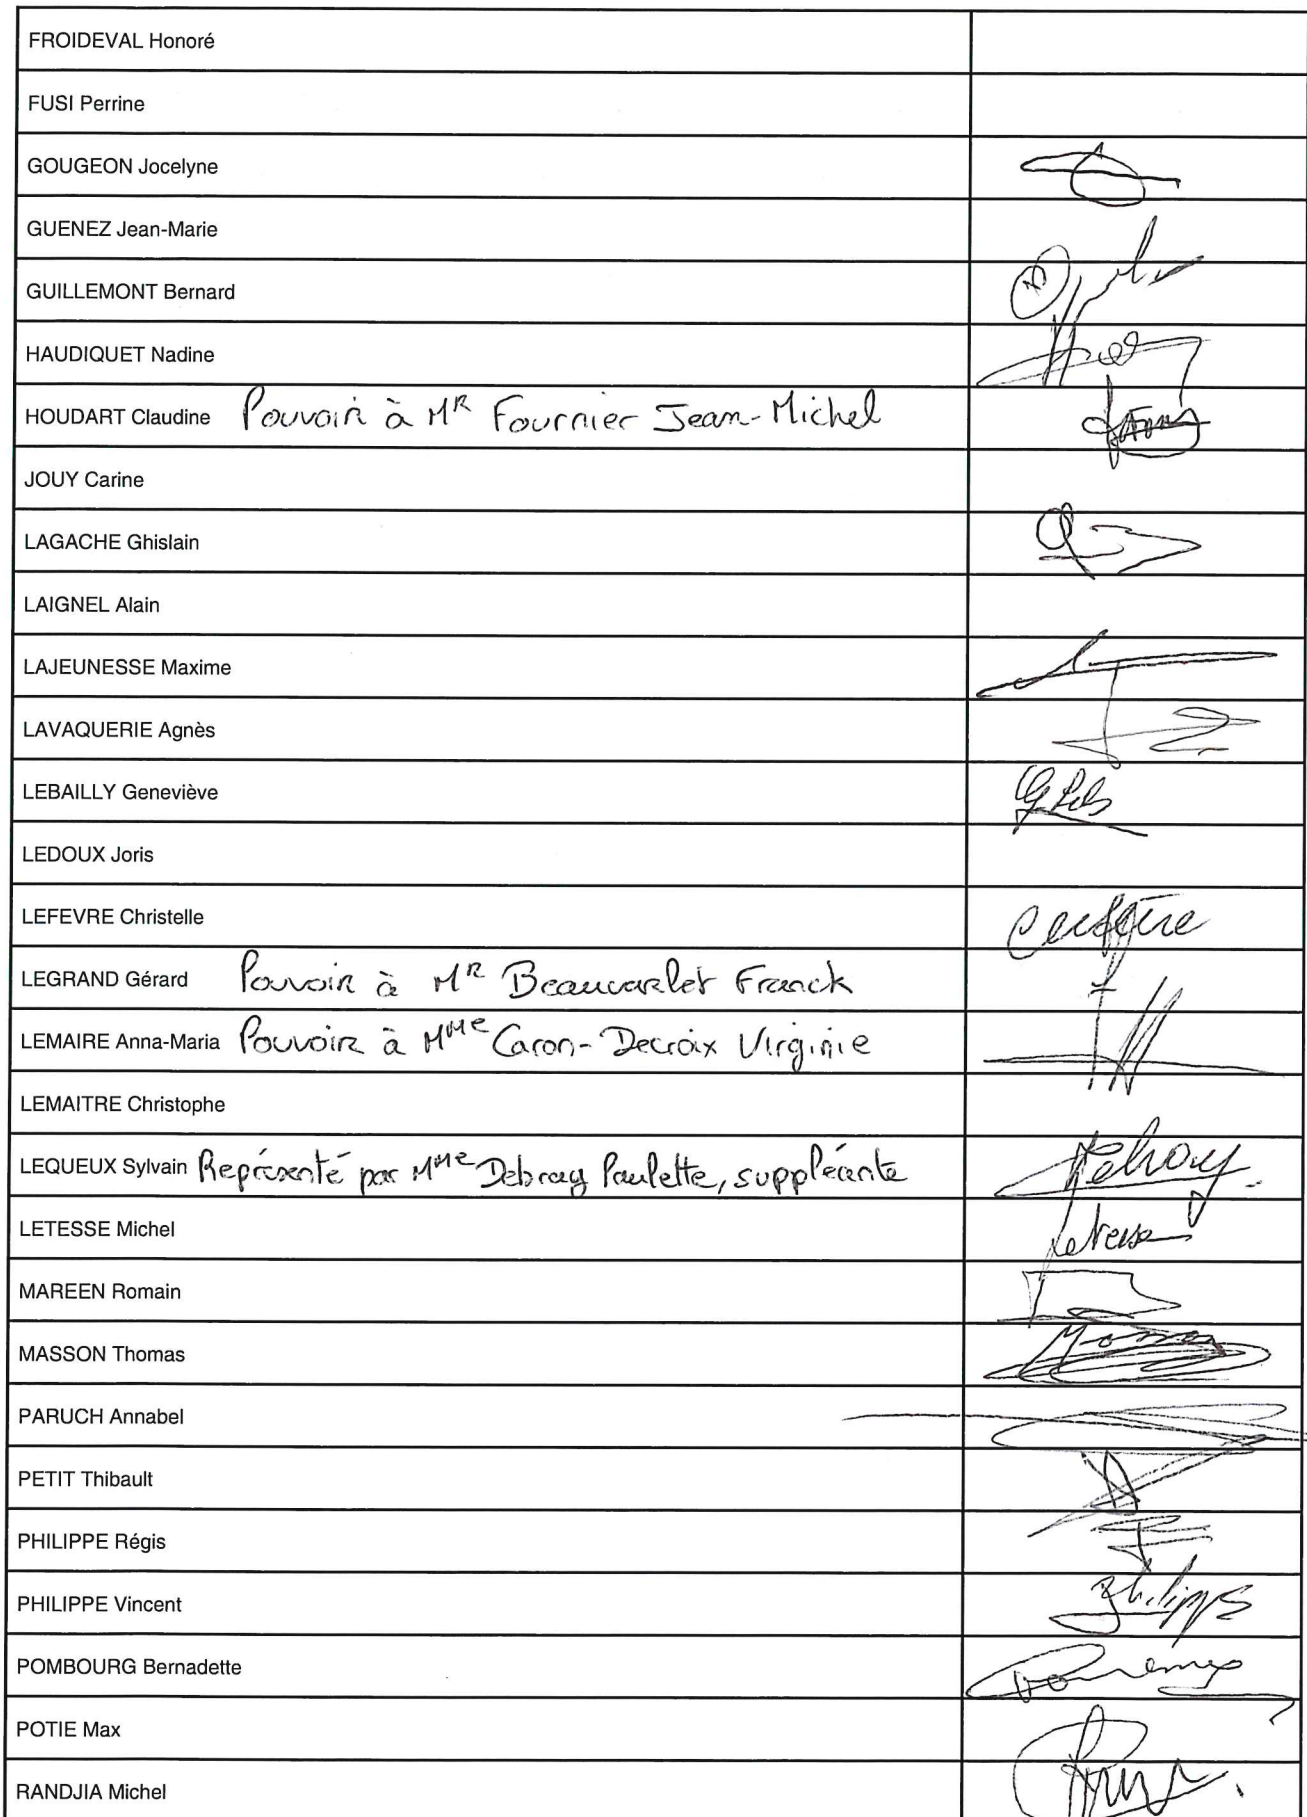 FROIDEVAL Honoré
FUSI Perrine
GOUGEON Jocelyne
GUENEZ Jean-Marie
GUILLEMONT Bernard
HAUDIQUET Nadine
HOUDART Claudine Pouvoir à MR Fournier Jean-Michel
JOUY Carine
LAGACHE Ghislain
LAIGNEL Alain
LAJEUNESSE Maxime
LAVAQUERIE Agnès
LEBAILLY Geneviève
LEDOUX Joris
LEFEVRE Christelle
LEGRAND Gérard Pouvoir à MR Beauvarlet Franck
LEMAIRE Anna-Maria Pouvoir à MMe Caron-Decroix Virginie
LEMAITRE Christophe
LEQUEUX Sylvain Représenté par MMe Debray Paulette, suppléante Debray
LETESSE Michel Letesse
MAREEN Romain
MASSON Thomas
PARUCH Annabel
PETIT Thibault
PHILIPPE Régis
PHILIPPE Vincent
POMBOURG Bernadette
POTIE Max
RANDJIA Michel